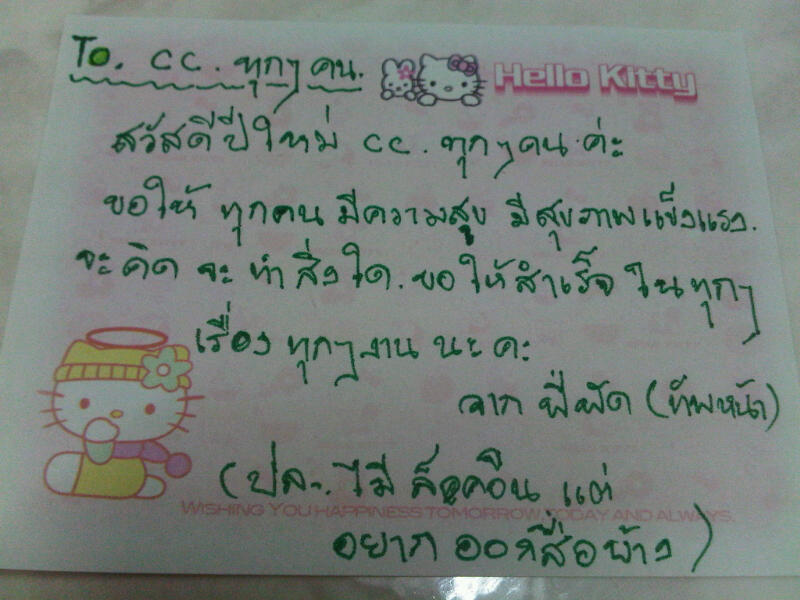 To. CC. ทุกๆ คน.
Hello Kitty
สวัสดีปีใหม่ cc. ทุกๆคน ค่ะ
ขอให้ ทุกคน มีความสุข มีสุขภาพแข็งแรง.
จะคิด จะ ทำ สิ่งใด. ขอให้สำเร็จ ในทุกๆ
เรื่อง ทุกๆงาน นะ คะ
จาก พี่พัด (ทัพหน้า)
(ปล. ไม่มี คือ แต่
WISHING YOU HAPPINESS TOMORROW, TODAY AND ALWAYS.
อยาก ออกสื่อบ้าง)